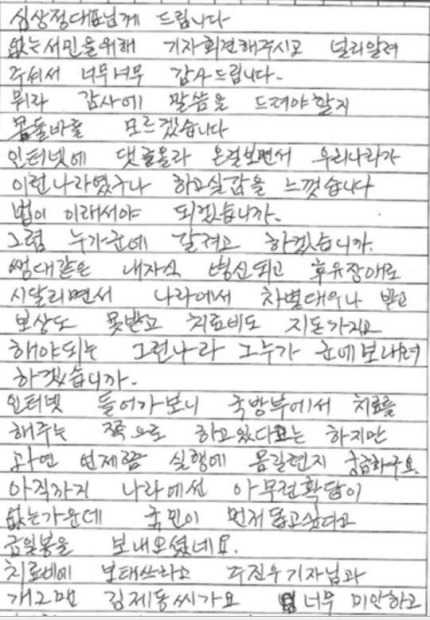 심상정대표님께 드립니다
없는서민을위해 기자회견해주시고 널리알려
주셔서 너무너무 감사드립니다.
뭐라 감사에 말씀을 드려야할지
몸둘바를 모르겠습니다
인터넷에 댓글올라 온걸보면서 우리나라가
이런나라였구나 하고실감을 느꼈습니다
법이 이래서야 되겠습니까.
그럼 누가군에 갈려고 하겠습니까.
쌩대같은 내자식 병신되고 후유장애로
시달리면서 나라에서 차별대우나 받고
보상도 못받고 치료비도 지돈가지고
해야되는 그런나라 그누가 군에보내려
하겠습니까.
인터넷 들어가보니 국방부에서 치료를
해주는 쪽으로 하고있다고는 하지만
과연 언제쯤 실행에 옮길런지 궁금하구요
아직까지 나라에선 아무런확답이
없는가운데 국민이 먼저돕고싶다고
금일봉을 보내오셨네요.
치료비에 보태쓰라고 주진우기자님과
개그맨 김제동씨가요 너무 미안하고